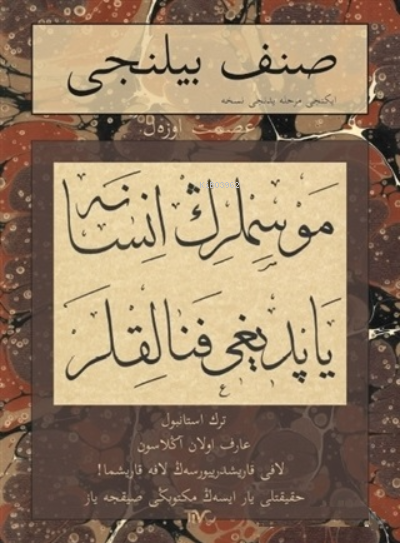 صنف بیلنجی
ایكنجی مرحله یدنجی نسخه
عصمت اوزەل
مَوْسِملرِڭ اِنسَانَه
یَاپدیغی فنَالِقلَر
ترك استانبول
عارف اولان آڭلاسون
لافی قاریشدیرییورسەڭ لافه قاریشما!
حقیقتلی یار ایسەڭ مكتوبڭی صیقجه یاز